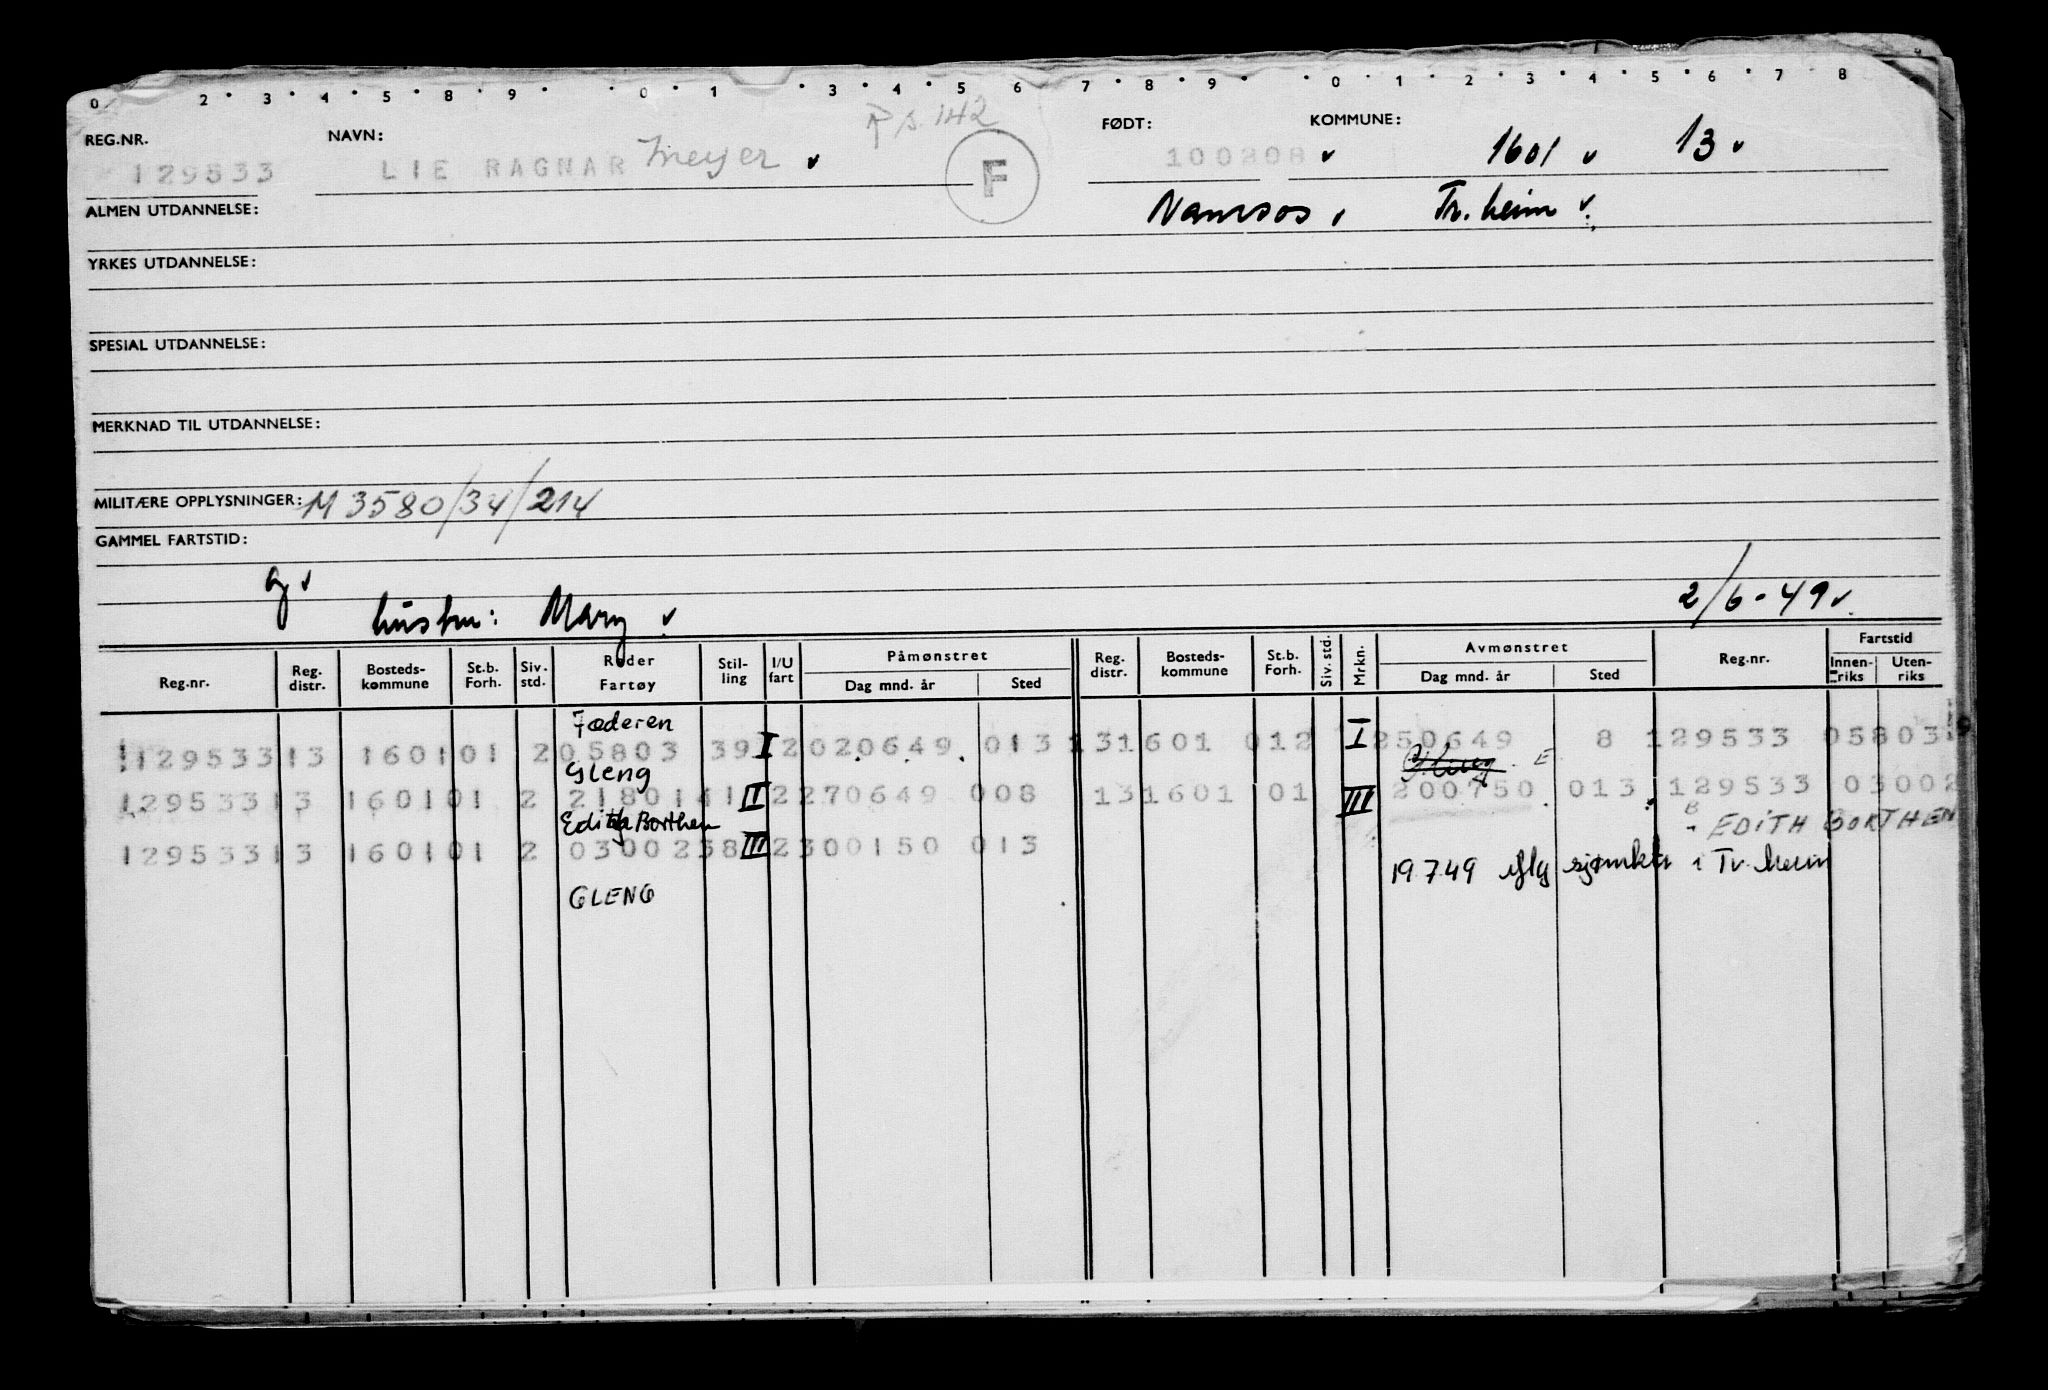 0 2 3 4 5 8 9 0 1 3 4 5 6 7 8 9 0 1 2 3 4 5 6 7 8
REG.NR. NAVN: FØDT: KOMMUNE:
129533 LIE RAGNAR Meyer F 1601 13
ALMEN UTDANNELSE: Namsos Tr.heim
YRKES UTDANNELSE:
SPESIAL UTDANNELSE:
MERKNAD TIL UTDANNELSE:
MILITÆRE OPPLYSNINGER: M 3580/34/214
GAMMEL FARTSTID:
g
hustru: Mary 2/6-49
Reg.nr. Reg. distr. Bosteds-kommune St.b. Forh. Siv. std. Reder Fartøy Stil-ling I/U fart Påmønstret Dag mnd. år Sted Reg. distr. Bosteds-kommune St.b. Forh. Siv. std. Mrkn. Avmønstret Dag mnd. år Sted Reg.nr. Fartstid Innen-riks Uten-riks
Jæderen
129533 13 1601 01 2 05803 39 I 2 020649 013 13 1601 012 I 250649 8 129533 05803
Gleng
129533 13 1601 01 2 21801 41 II 2 270649 008 13 1601 01 III 200750 013 129533 03002
Edith Borthen EDITH BORTHEN
129533 13 1601 01 2 03002 38 III 2 300150 013
19.7.49 iflg sjømktr i Tr.heim
GLENG